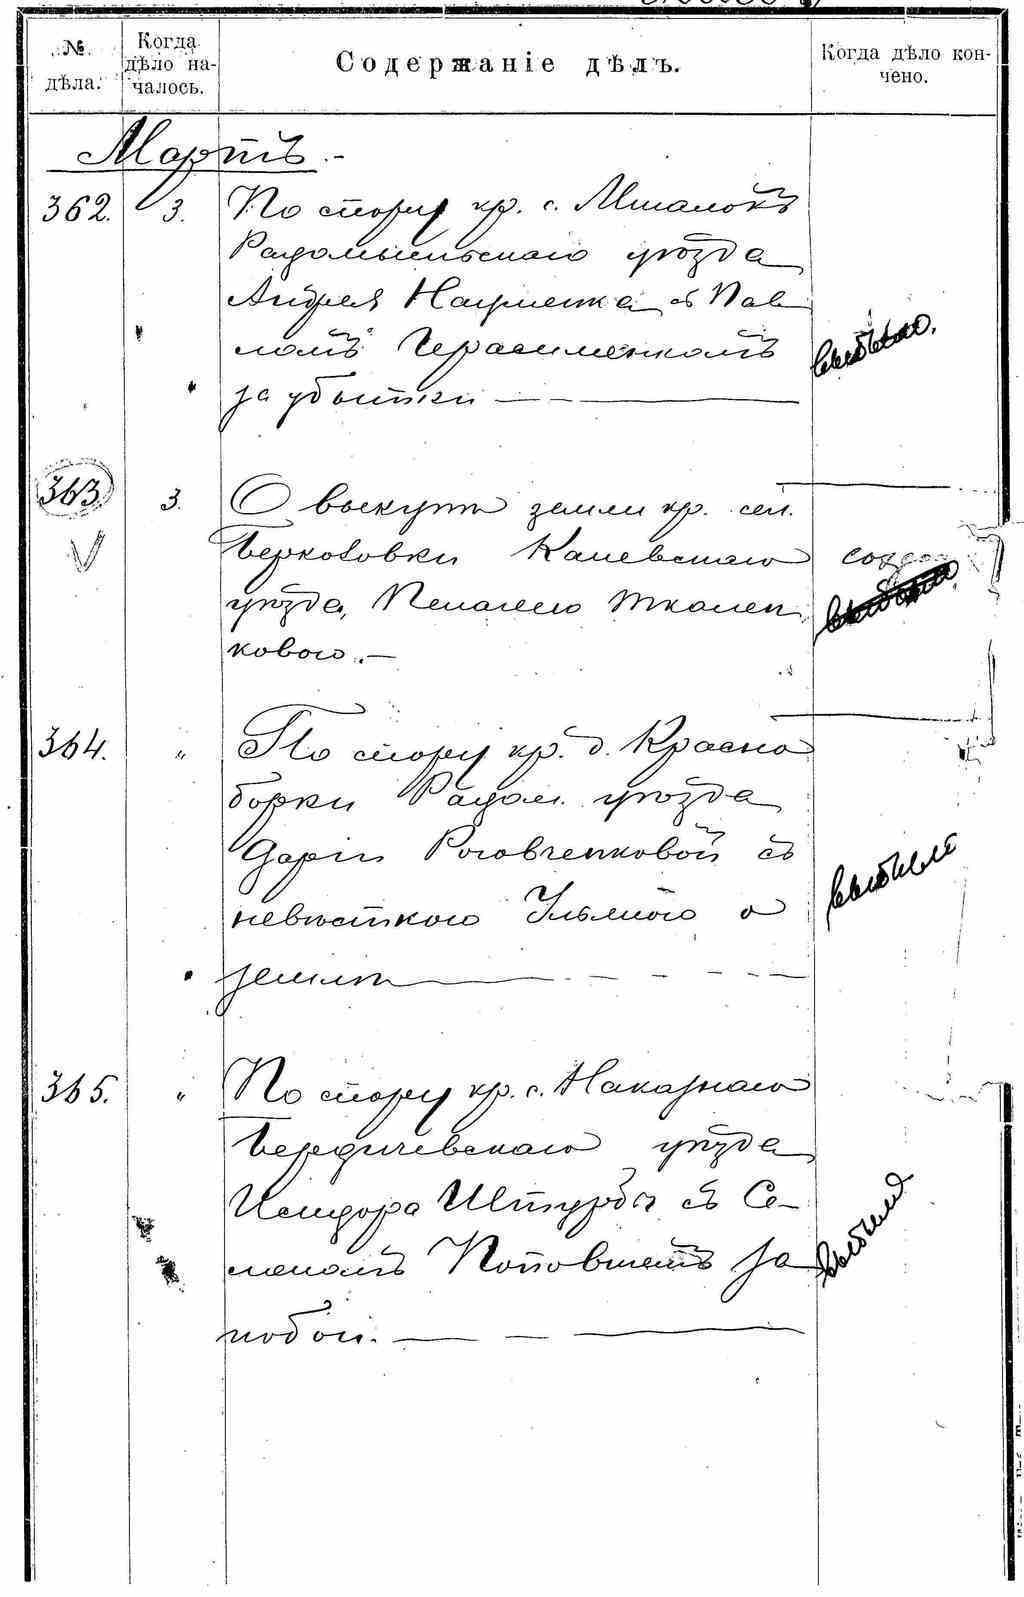 № дѣла.
Когда дѣло на-
чалось.
Содержаніе дѣлъ.
Когда дѣло кон-
чено.
Мартъ.-
362. 3. По спору кр. с. Мигалокъ
Радомысльскаго уѣзда
Андрея Науменка съ Пав
ломъ Герасименкомъ
за убытки
выбыло.
363. 3. О выкупѣ земли кр. сел.
Берковки Каневскаго
уѣзда, Пелагею Ткален
ковою.-
364. „ По спору кр. д. Красно
борки Радом. уѣзда
Дарьи Роговченковой съ
невѣсткою Ульяною о
землѣ
выбыло
365. „ По спору кр. с. Наказнаго
Бердичевскаго уѣзда
Исидора Штурбы съ Се-
меномъ Поповичемъ за
побои.
выбыло